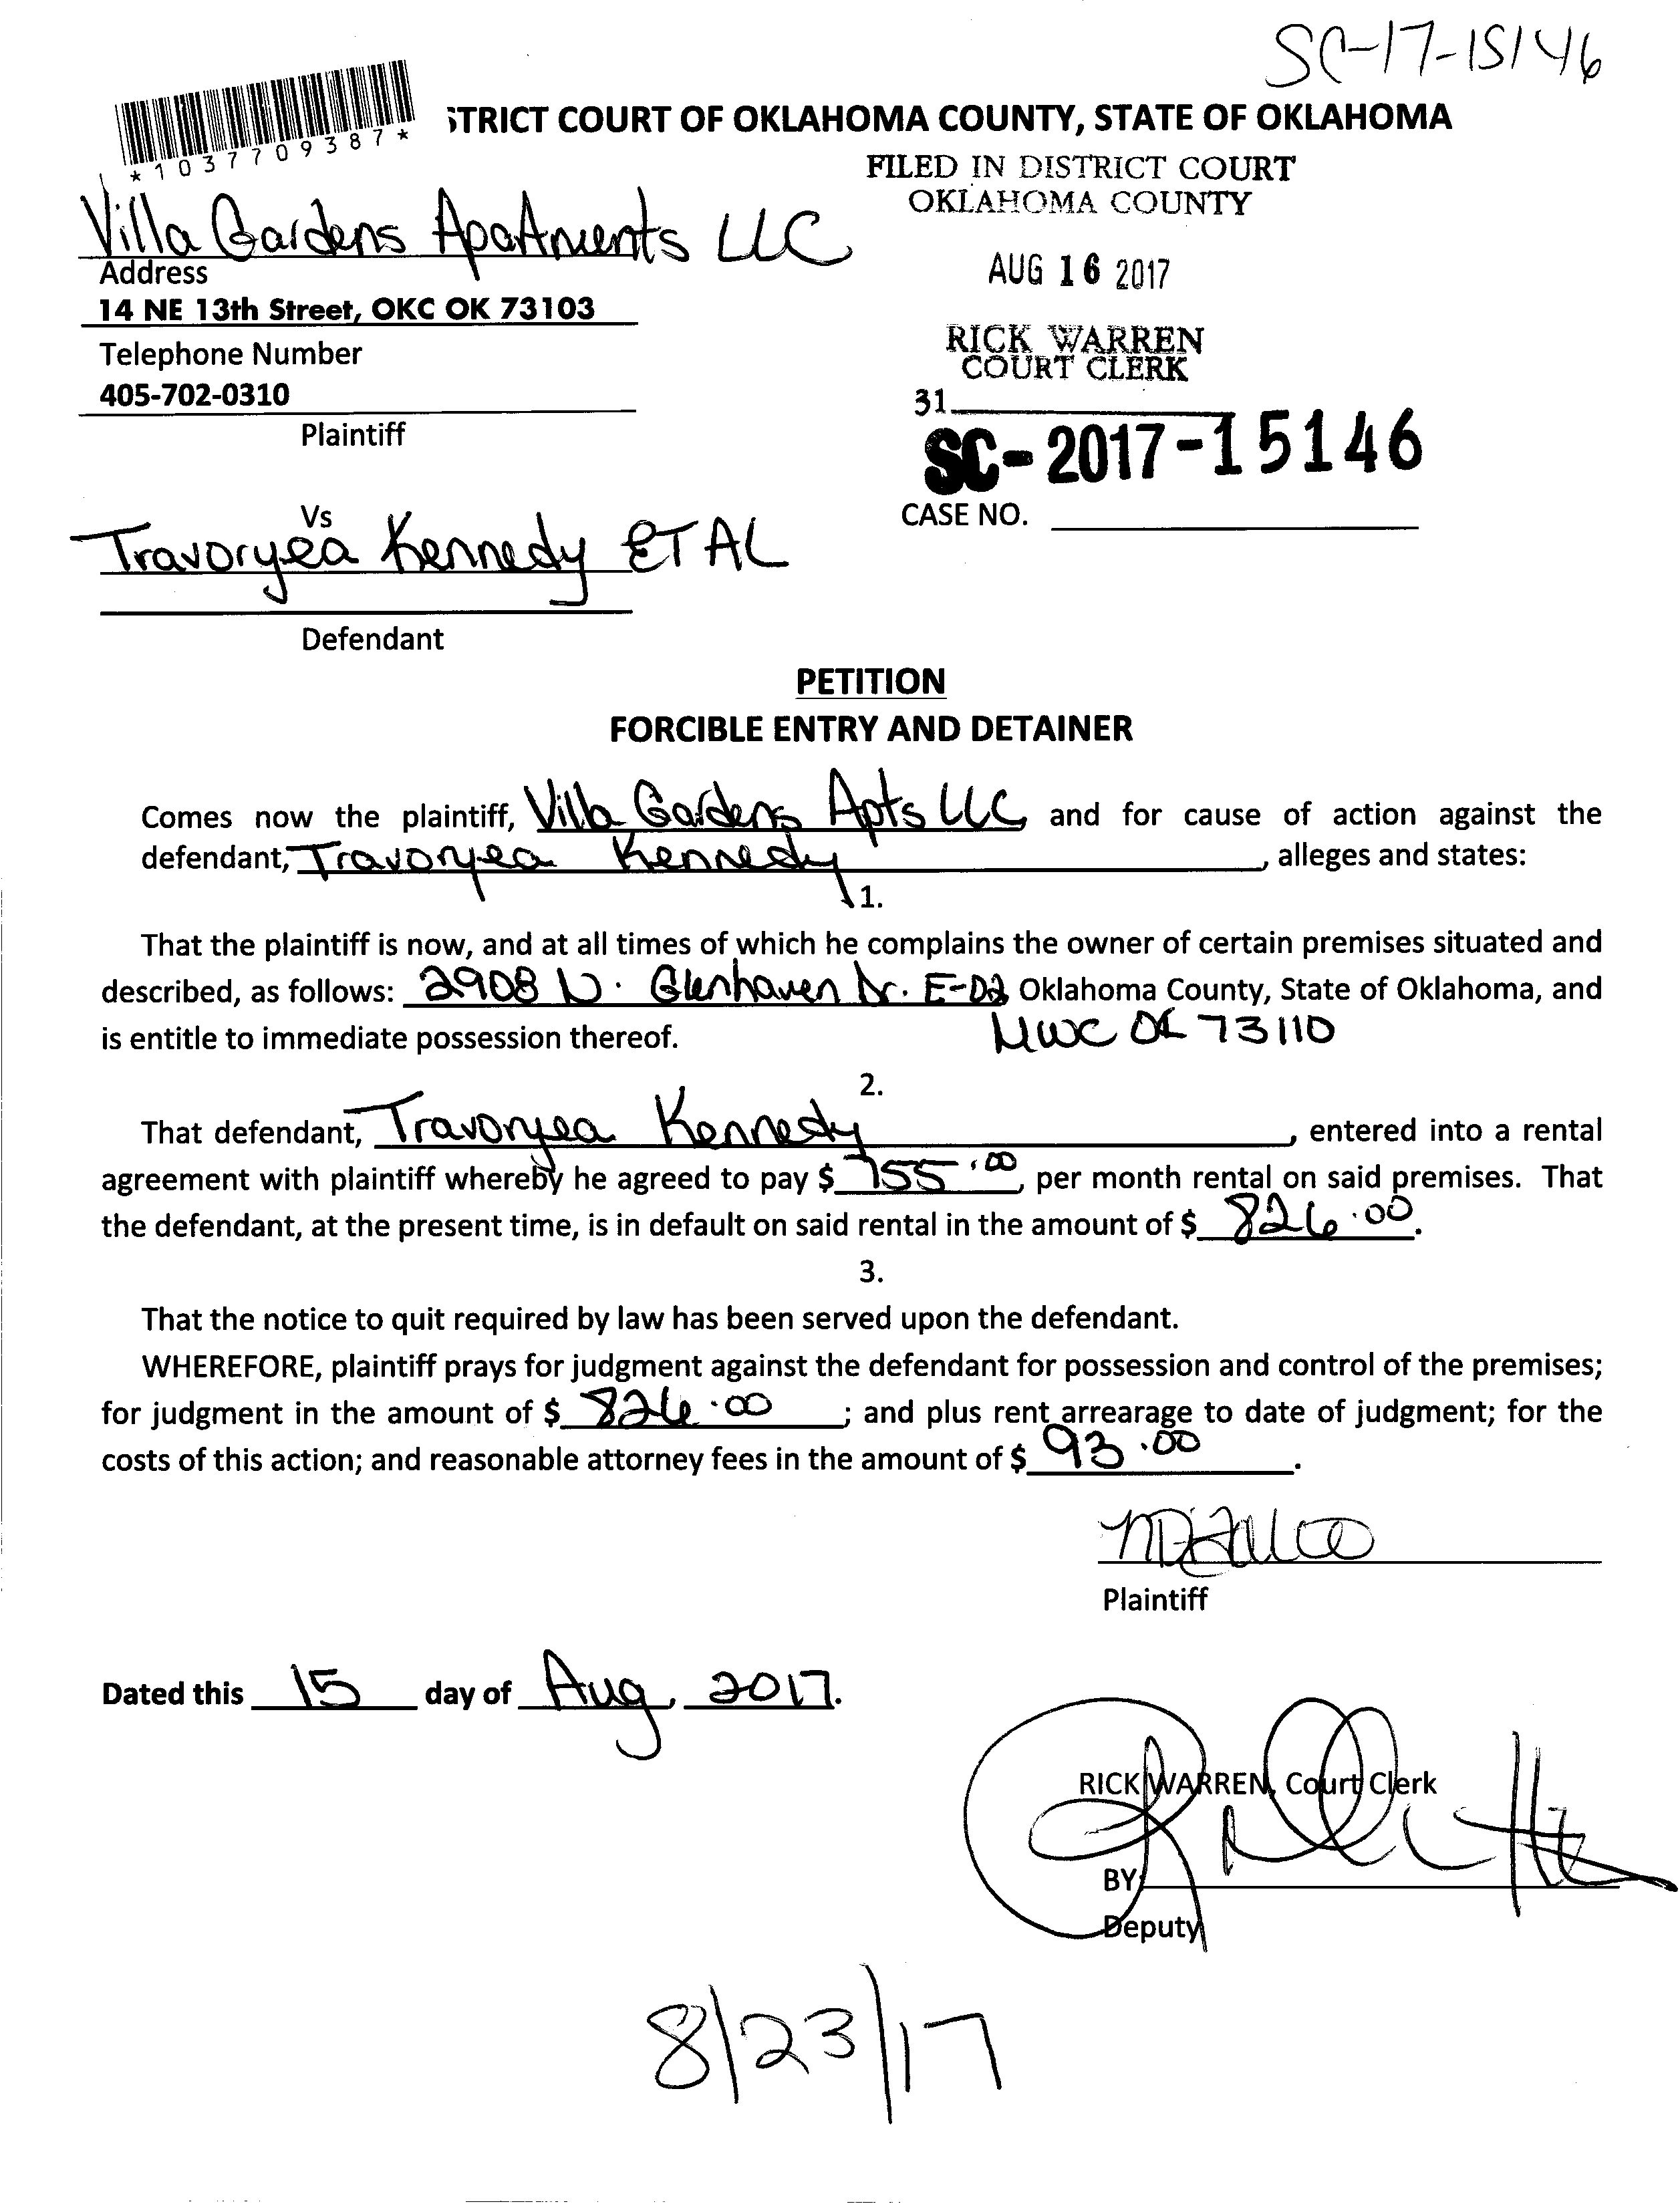 SC-17-15146
*1037709387*
STRICT COURT OF OKLAHOMA COUNTY, STATE OF OKLAHOMA
FILED IN DISTRICT COURT
OKLAHOMA COUNTY
Villa Gardens Apartments LLC
Address
AUG 16 2017
14 NE 13th Street, OKC OK 73103
Telephone Number
RICK WARREN
COURT CLERK
405-702-0310
31
Plaintiff
SC-2017-15146
CASE NO.
Vs
Travoryea Kennedy ET AL
Defendant
PETITION
FORCIBLE ENTRY AND DETAINER
Comes now the plaintiff, Villa Gardens Apts LLC and for cause of action against the
defendant, Travoryea Kennedy, alleges and states:
1.
That the plaintiff is now, and at all times of which he complains the owner of certain premises situated and
described, as follows: 2908 N. Glenhaven Dr. E-D2 Oklahoma County, State of Oklahoma, and
is entitle to immediate possession thereof. MWC OK 73110
2.
That defendant, Travoryea Kennedy, entered into a rental
agreement with plaintiff whereby he agreed to pay $ 755.00, per month rental on said premises. That
the defendant, at the present time, is in default on said rental in the amount of $ 826.00.
3.
That the notice to quit required by law has been served upon the defendant.
WHEREFORE, plaintiff prays for judgment against the defendant for possession and control of the premises;
for judgment in the amount of $ 826.00; and plus rent arrearage to date of judgment; for the
costs of this action; and reasonable attorney fees in the amount of $ 93.00.
Plaintiff
Dated this 15 day of Aug, 2017.
RICK WARREN, Court Clerk
BY
Deputy
8/23/17